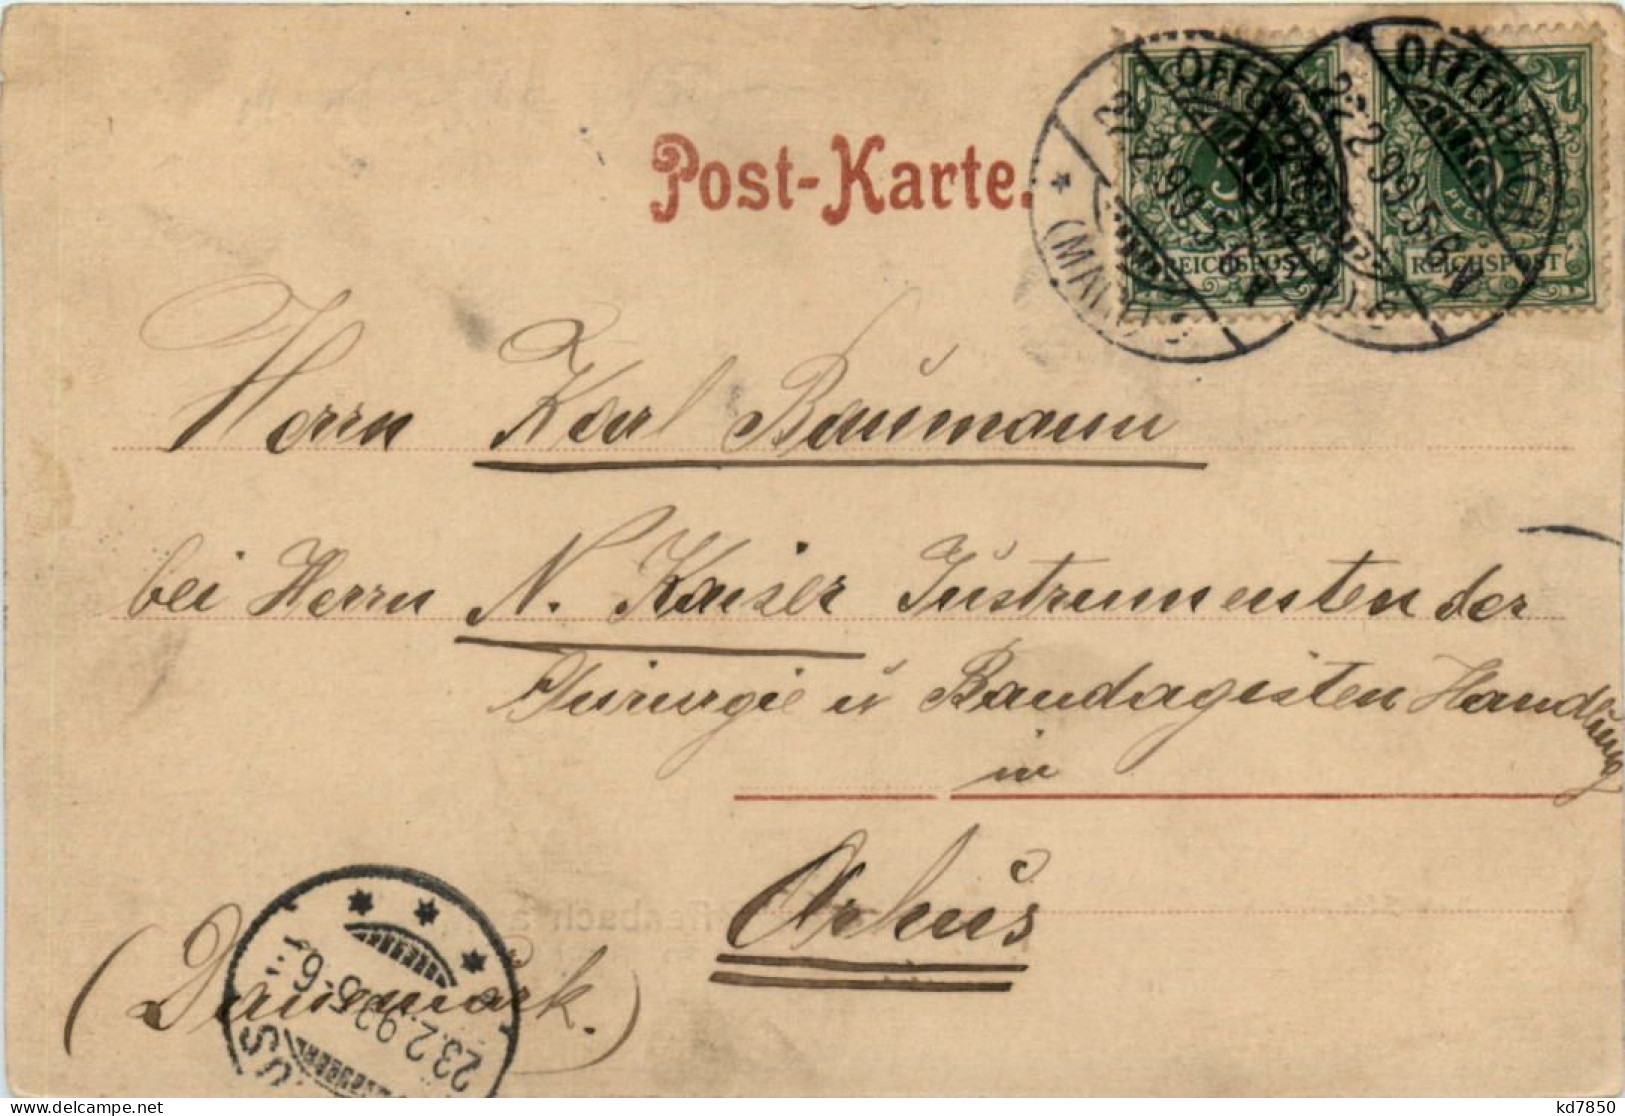 Post-Karte.
OFFENBACH
22.2.99.5-6N
* (MAIN)
5
PFENNIG
REICHSPOST
OFFENBACH
22.2.99.5-6N
REICHSPOST
Herrn Karl Baumann
bei Herrn N. Kaiser Instrumenten der
Chirurgie u Bandagisten Handlung
in
Arhus
(Danemark.)
23.2.99 5-6
kd7850